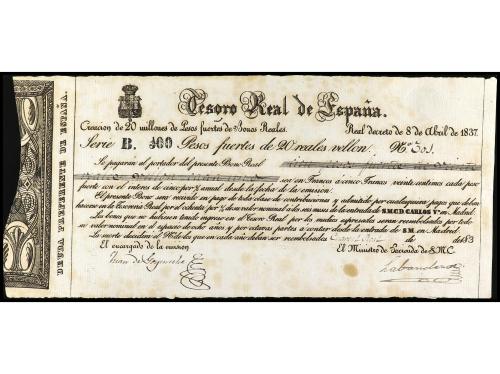 Tesoro Real de España.
Creacion de 20 millones de Pesos fuertes de Bonos Reales. Real decreto de 8 de Abril de 1837.
Serie B. 400 Pesos fuertes de 20 reales vellon. Nº 301.
Se pagarán al portador del presente Bono Real
sea en Francos á cinco Francos veinte centimos cada peso
fuerte con el interes de cinco por % anual desde la fecha de la emision.
El presente Bono sera recivido en pago de toda clase de contribuciones y admitido por cualesquiera pagos que deban
hacerse en la Tesoreria Real por el ochenta por % de su valor nominal a los seis meses de la entrada de S.M.C.D. CARLOS V. en Madrid
Los bonos que no hubiesen tenido ingreso en el Tesoro Real por los medios espresados serán reembolsados por todo
su valor nominal en el espacio de ocho años y por octavas partes a contar desde la entrada de S.M. en Madrid
La suerte decidirá los que en cada año deban ser reembolsados
de 183
El encargado de la emision El Ministro de Hacienda de S.M.C.
Labandero
DEUDA